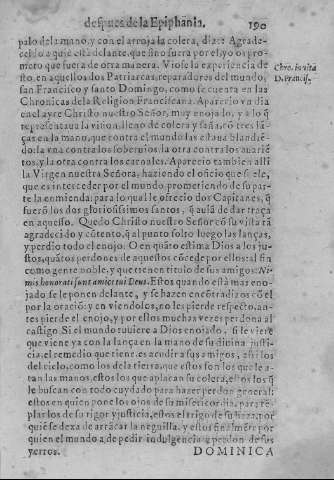 despues de la Epiphania. 190
palo de la mano, y con el arroja la colera, diziẽ. Agrade-
cedlo a que està delante, que sino fuera por el, yo os pro-
meto que fuera de otra manera. Viose la experiencia de
sto, en aquellos dos Patriarcas, reparadores del mundo,
san Francisco y santo Domingo, como se cuenta en las
Chronicas de la Religion Franciscana. Aparecio vn dia
en el ayre Christo nuestro Señor, muy enojado, y a lo q̃
representaua, lleno de colera y saña, cõ tres lã-
ças en la mano, que contra el mundo las estaua blandeẽ
do: la vna contra los soberuios, la otra contra los auariẽ
tos, y la otra contra los carnales. Aparecio tambien alli
la Virgen nuestra Señora, haziendo el oficio que suele,
que es interceder por el mundo, prometiendo de su par-
te la enmienda: para lo qual le ofrecio dos Capitanes, q̃
fuerõ los dos gloriosissimos santos, q̃ auiã de dar traça
en aquesso. Quedo Christo nuestro Señor cõ su vista tã
agradecido y cõtento, q̃ al punto solto luego las lanças,
y perdio todo el enojo. O en quãto estima Dios a los ju-
stos, quãtos perdones de aquestos cõcede por ellos: al fin
como gente noble, y que tienen titulo de sus amigos: Ni-
mis honorati sunt amici tui Deus. Estos quando està mas eno-
jado se le ponen delante, y se hazen encõtradizos cõ el
por la oraciõ: y en viendolos, no les pierde respecto, an-
tes pierde el enojo, y por ellos muchas vezes perdona al
castigo. Si el mundo tuuiere a Dios enojado, si le viere
que viene ya con la lança en la mano de su diuina justi-
cia, el remedio que tiene es acudir a sus amigos, assi los
del cielo, como los de la tierra, que estos son los que le a-
tan las manos, estos los que aplacan su colera, ellos los q̃
le buscan con todo cuydado para hazer perdon general:
estos en quien pone los ojos de su misericordia, para tẽ-
plar los de su rigor y justicia, estos el trigo de su haza, por
quiẽ se dexa de arrãcar la neguilla, y estos finalmẽte por
quien el mundo a de pedir indulgencia y perdon de sus
yerros. DOMINICA
Chro. in vita
D. Francis.